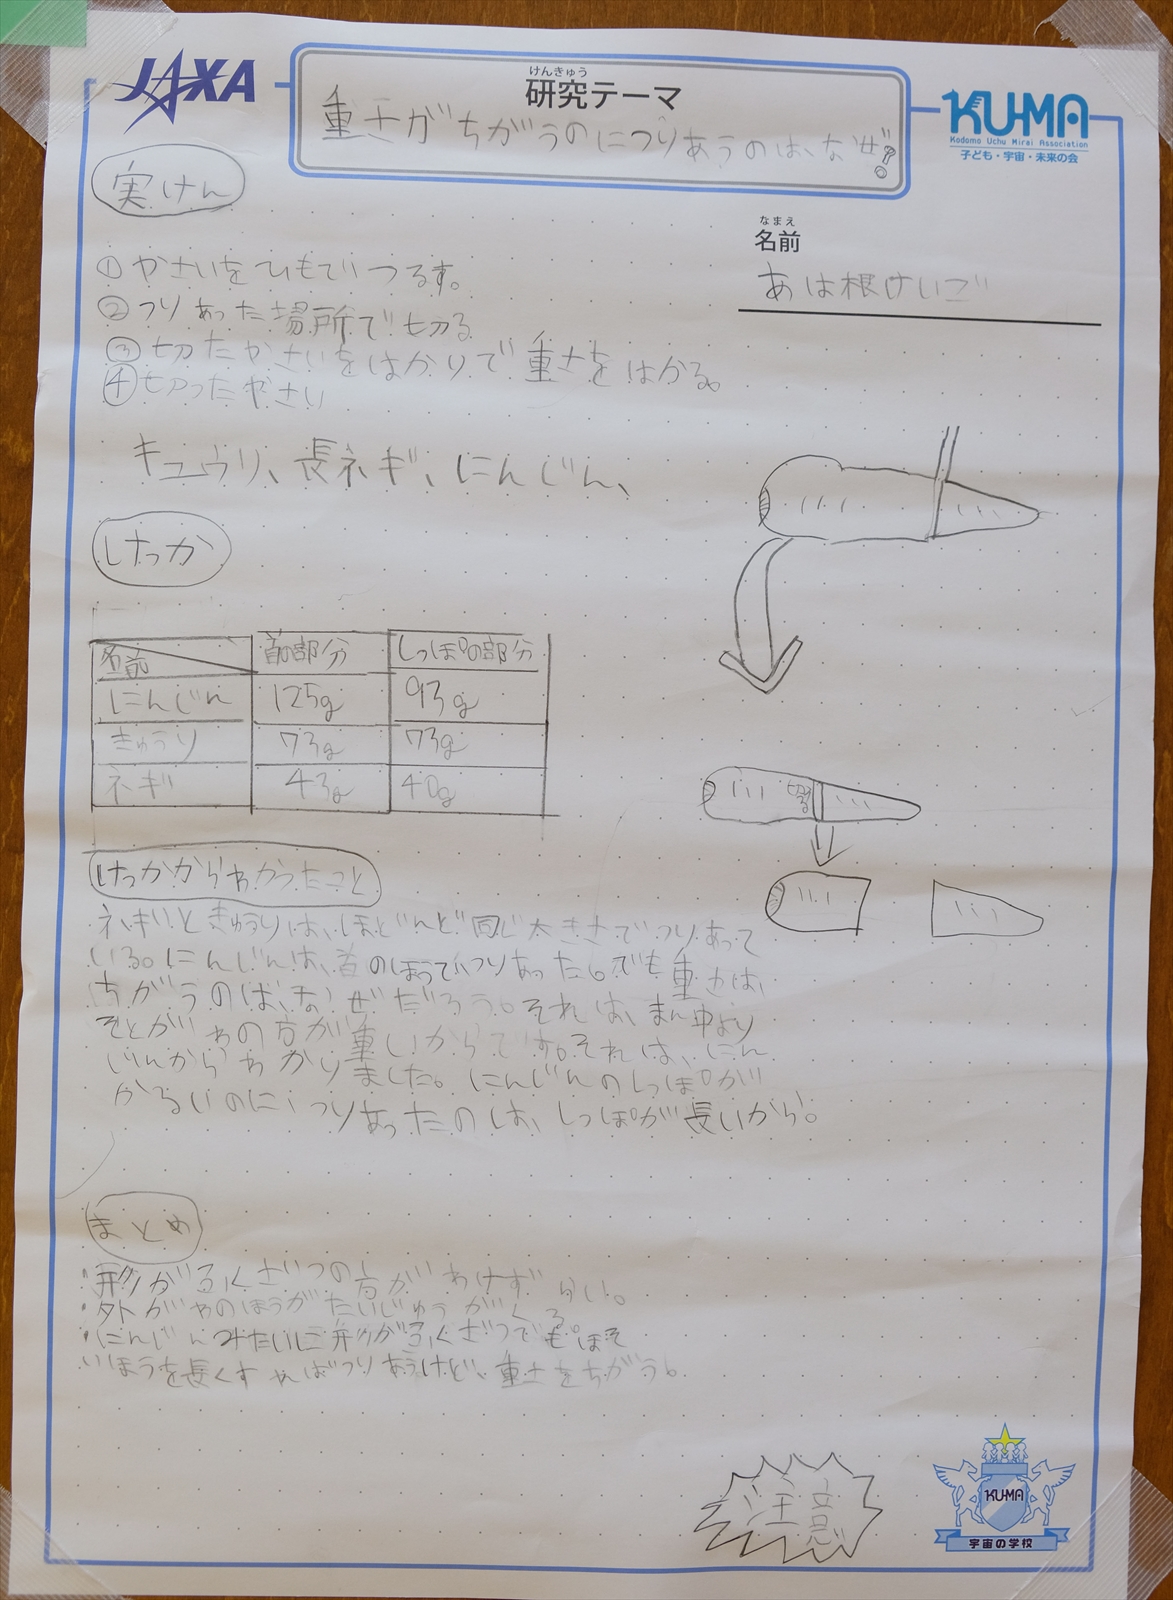 JAXA
けんきゅう
研究テーマ
重さがちがうのにつりあうのは、なぜ?。
KU-MA
Kodomo Uchu Mirai Association
子ども・宇宙・未来の会
実けん
なまえ
名前
あは根けいご
①やさいをひもでつるす。
②つりあった場所で切る
③切たやさいをはかりで重さをはかる。
④切ったやさい
キュウリ、長ネギ、にんじん、
けっか
名前 首の部分 しっぽの部分
にんじん 125g 93g
きゅうり 73g 73g
ネギ 43g 40g
切る
けっかからわかったこと
ネギときゅうりは、ほどんど同じ大きさでつりあって
いる。にんじんは、首のほうでつりあった。でも重さは、
ちがうのは、なぜだろう。それは、まん中より
そとがわの方が重いからです。それは、にん
じんからわかりました。にんじんのしっぽが
かるいのに、つりあったのは、しっぽが長いから。
まとめ
・形がふくざつの方がわけず らい。
・外がわのほうがたいじゅうが る。
・にんじんみたいに形がふくざつでも。ほそ
いほうを長くすればつりあうけど、重さをちがう。
注意
KU-MA
宇宙の学校